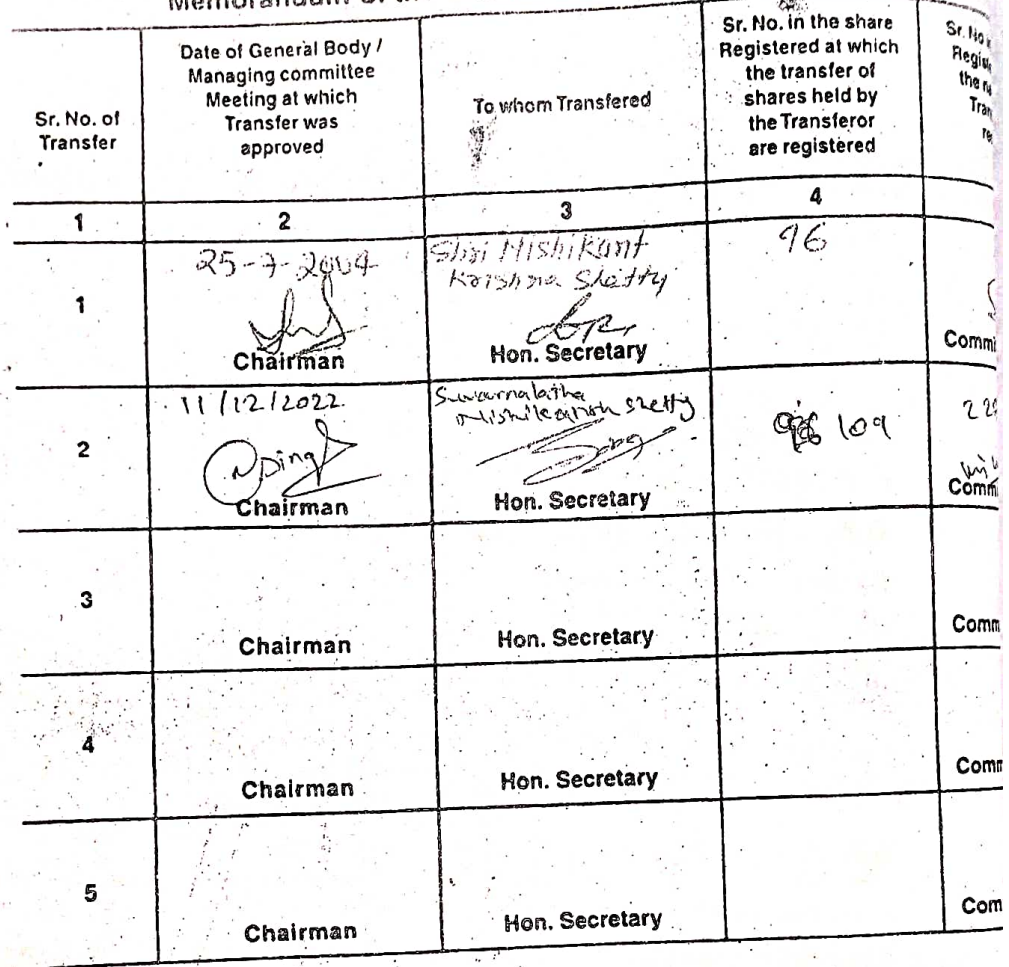 Sr. No. of
Transfer
Date of General Body /
Managing committee
Meeting at which
Transfer was
approved
To whom Transfered
Sr. No. in the share
Registered at which
the transfer of
shares held by
the Transferor
are registered
Sr. No
1
2
3
4
1
25-7-2004
Chairman
Shri Nishikant
Krishna Shetty
Hon. Secretary
96
Commi
2
11/12/2022
Chairman
Swarnalatha
Nishikanth Shetty
Hon. Secretary
109
Commi
3
Chairman
Hon. Secretary
Comm
4
Chairman
Hon. Secretary
Comm
5
Chairman
Hon. Secretary
Com